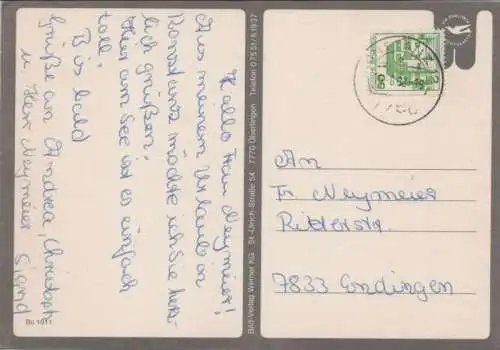 Hallo Frau Neymeier!
Aus meinem Urlaub in
Konstanz möchte ich Sie herz-
lich grüßen!
Hier am See ist es einfach
toll!
Bis bald
Grüße an Andrea, Christoph
u. Herr Neymeier
Sigrid
Bo 1011
Bild-Verlag Werner KG St.-Ulrich-Straße 54 7770 Überlingen Telefon 0 75 51/6 19 37
50
An
Fr. Neymeier
Ritterstr.
7833 Endingen